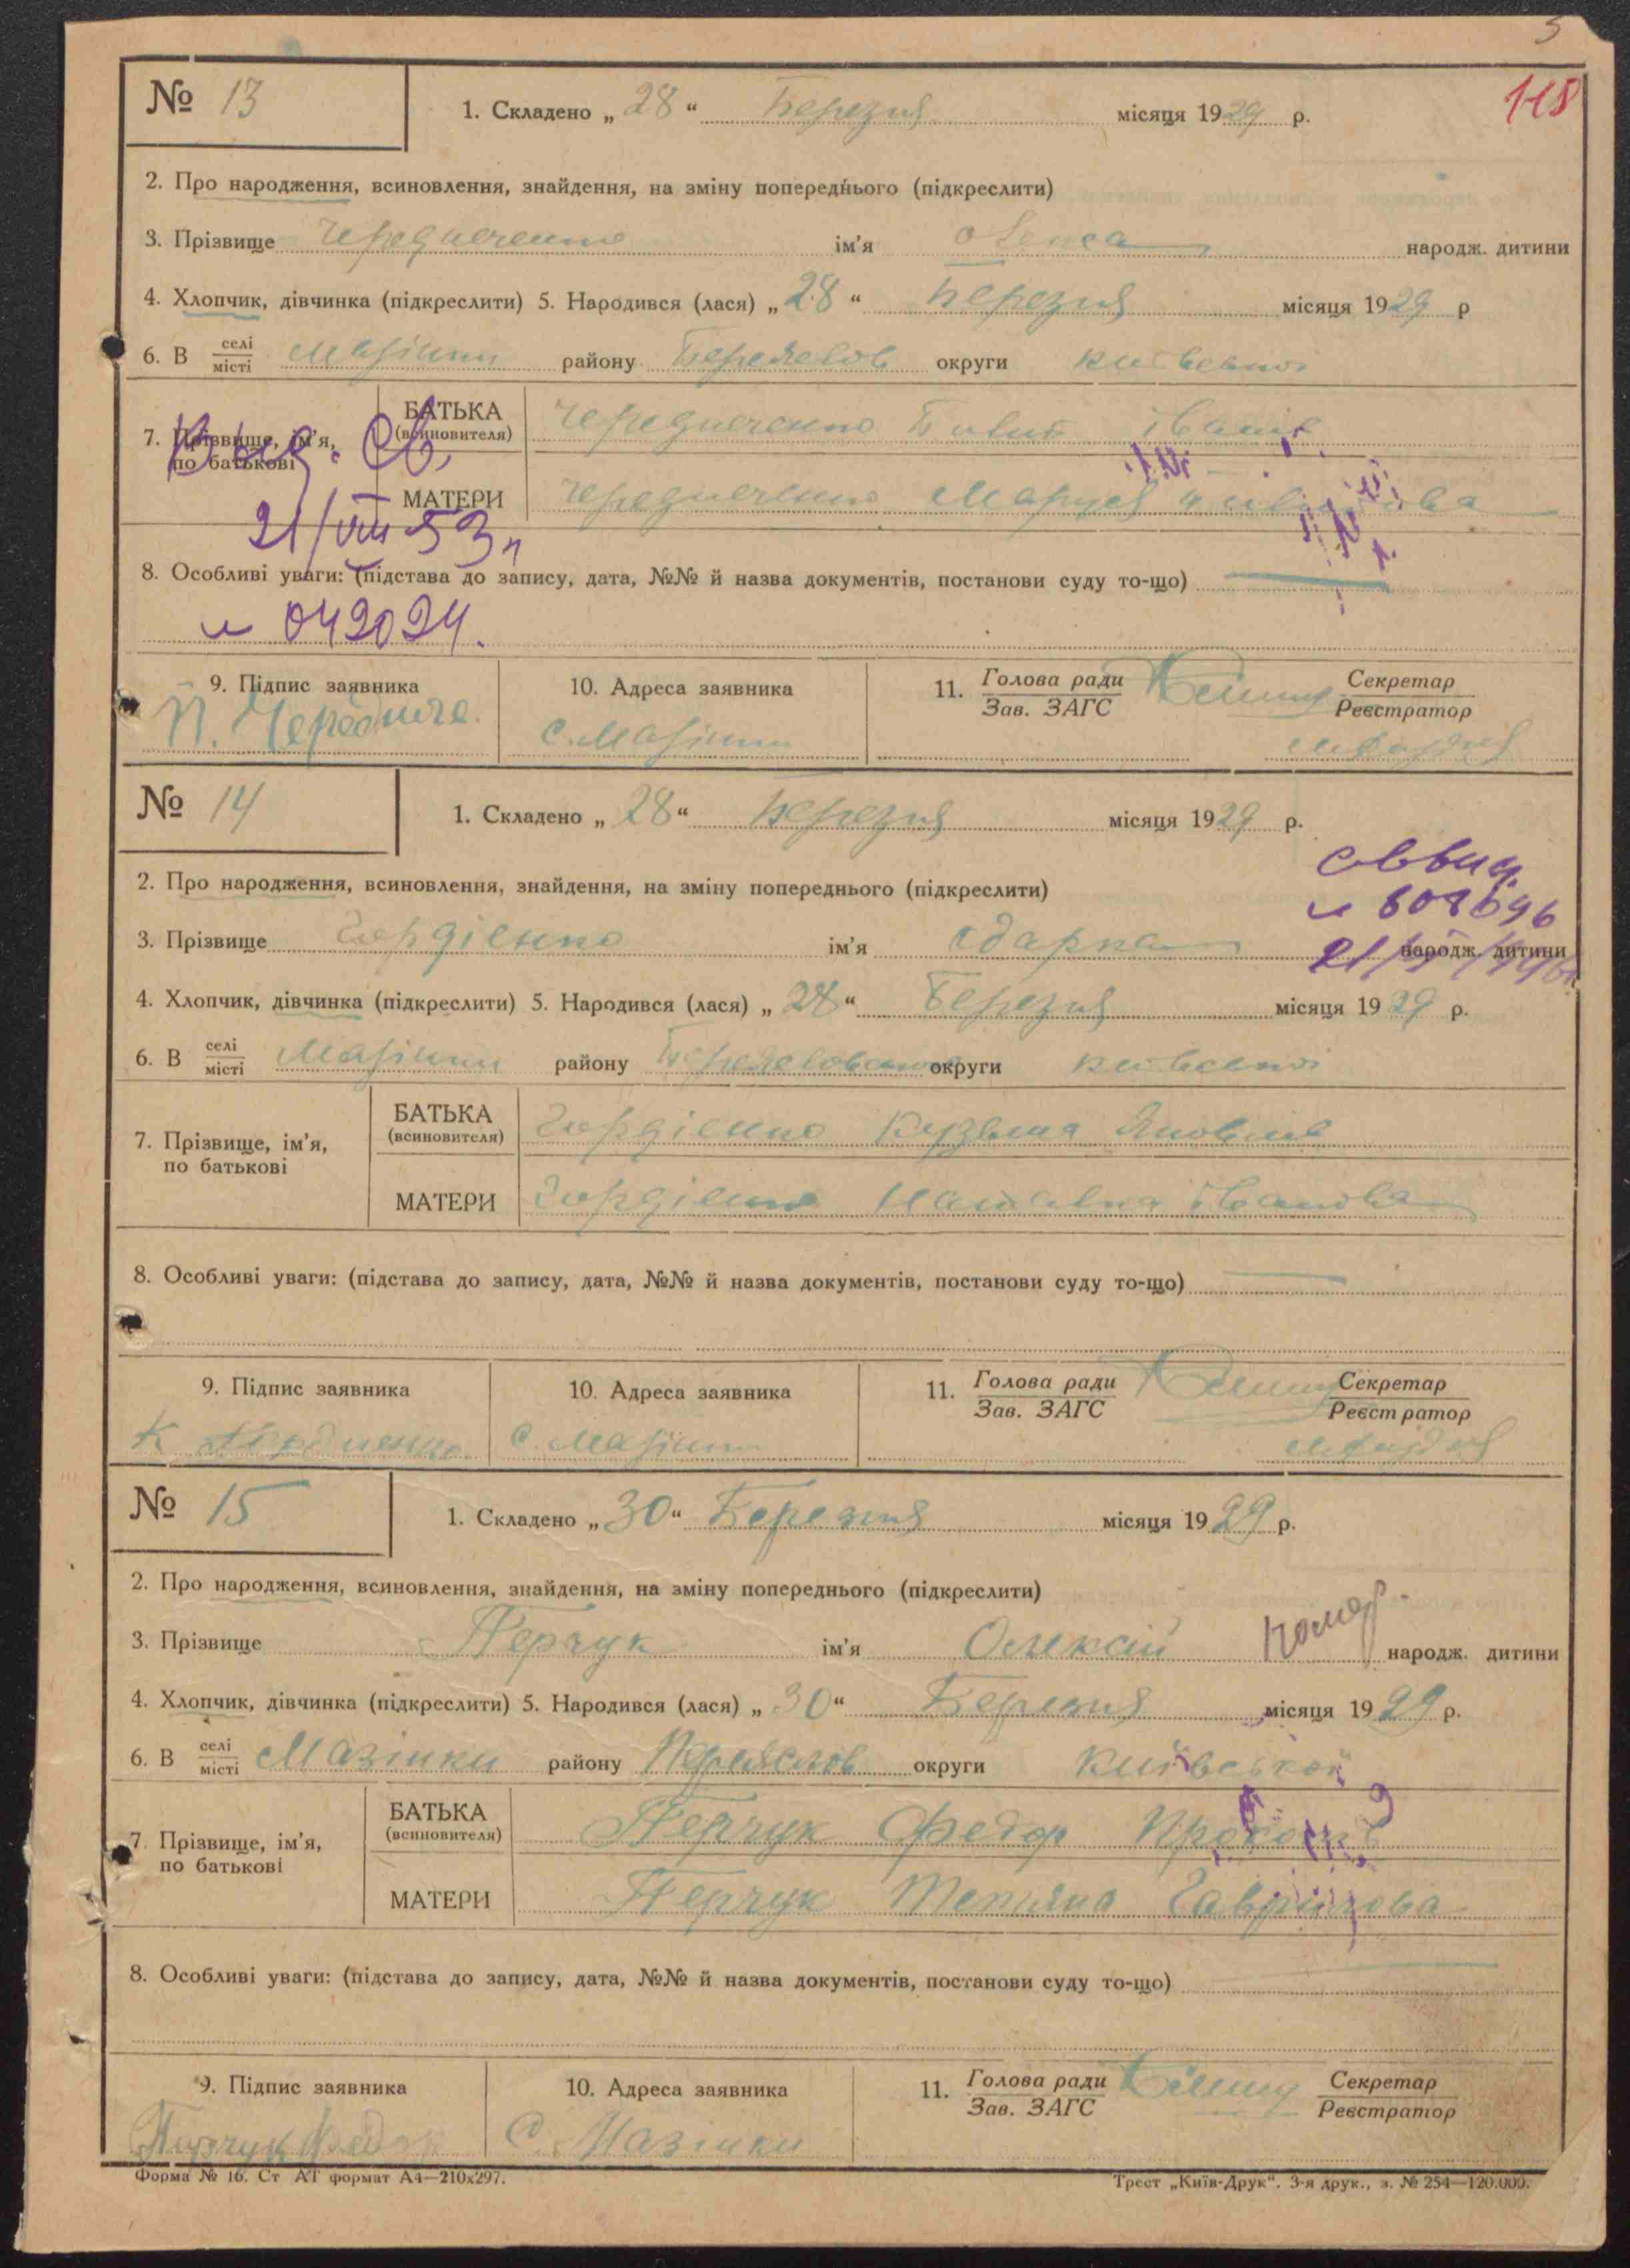 5
118
№ 13
1. Складено „28“ Березня місяця 1929 р.
2. Про народження, всиновлення, знайдення, на зміну попереднього (підкреслити)
3. Прізвище Чередниченко ім'я народж. дитини
4. Хлопчик, дівчинка (підкреслити) 5. Народився (лася) „28“ Березня місяця 1929 р
6. В селі місті Мазінки району округи Київської
7. Прізвище, ім'я, по батькові
БАТЬКА (всиновителя) Чередниченко Іванів
МАТЕРИ Чередниченко Маруся
21/VIII 53
8. Особливі уваги: (підстава до запису, дата, №№ й назва документів, постанови суду то-що)
042024.
9. Підпис заявника
П. Чередниче.
10. Адреса заявника
с. Мазінки
11. Голова ради
Зав. ЗАГС
Секретар
Реєстратор
№ 14
1. Складено „28“ Березня місяця 1929 р.
2. Про народження, всиновлення, знайдення, на зміну попереднього (підкреслити)
3. Прізвище Гордієнко ім'я Одарка народж. дитини
4. Хлопчик, дівчинка (підкреслити) 5. Народився (лася) „28“ Березня місяця 1929 р.
6. В селі місті Мазінки району округи Київської
7. Прізвище, ім'я, по батькові
БАТЬКА (всиновителя) Гордієнко Кузьма Яковлів
МАТЕРИ Гордієнко Наталка Іванова
8. Особливі уваги: (підстава до запису, дата, №№ й назва документів, постанови суду то-що)
9. Підпис заявника
10. Адреса заявника
с. Мазінки
11. Голова ради
Зав. ЗАГС
Секретар
Реєстратор
№ 15
1. Складено „30“ Березня місяця 1929 р.
2. Про народження, всиновлення, знайдення, на зміну попереднього (підкреслити)
3. Прізвище Перчук ім'я Олексій народж. дитини
4. Хлопчик, дівчинка (підкреслити) 5. Народився (лася) „30“ Березня місяця 1929 р.
6. В селі місті Мазінки району округи Київської
7. Прізвище, ім'я, по батькові
БАТЬКА (всиновителя) Перчук Федор
МАТЕРИ Перчук Тетяна Гаврилова
8. Особливі уваги: (підстава до запису, дата, №№ й назва документів, постанови суду то-що)
9. Підпис заявника
Перчук Федор
10. Адреса заявника
С. Мазінки
11. Голова ради
Зав. ЗАГС
Секретар
Реєстратор
Форма № 16. Ст АТ формат А4—210х297.
Трест „Київ-Друк“. 3-я друк., з. № 254—120.000.